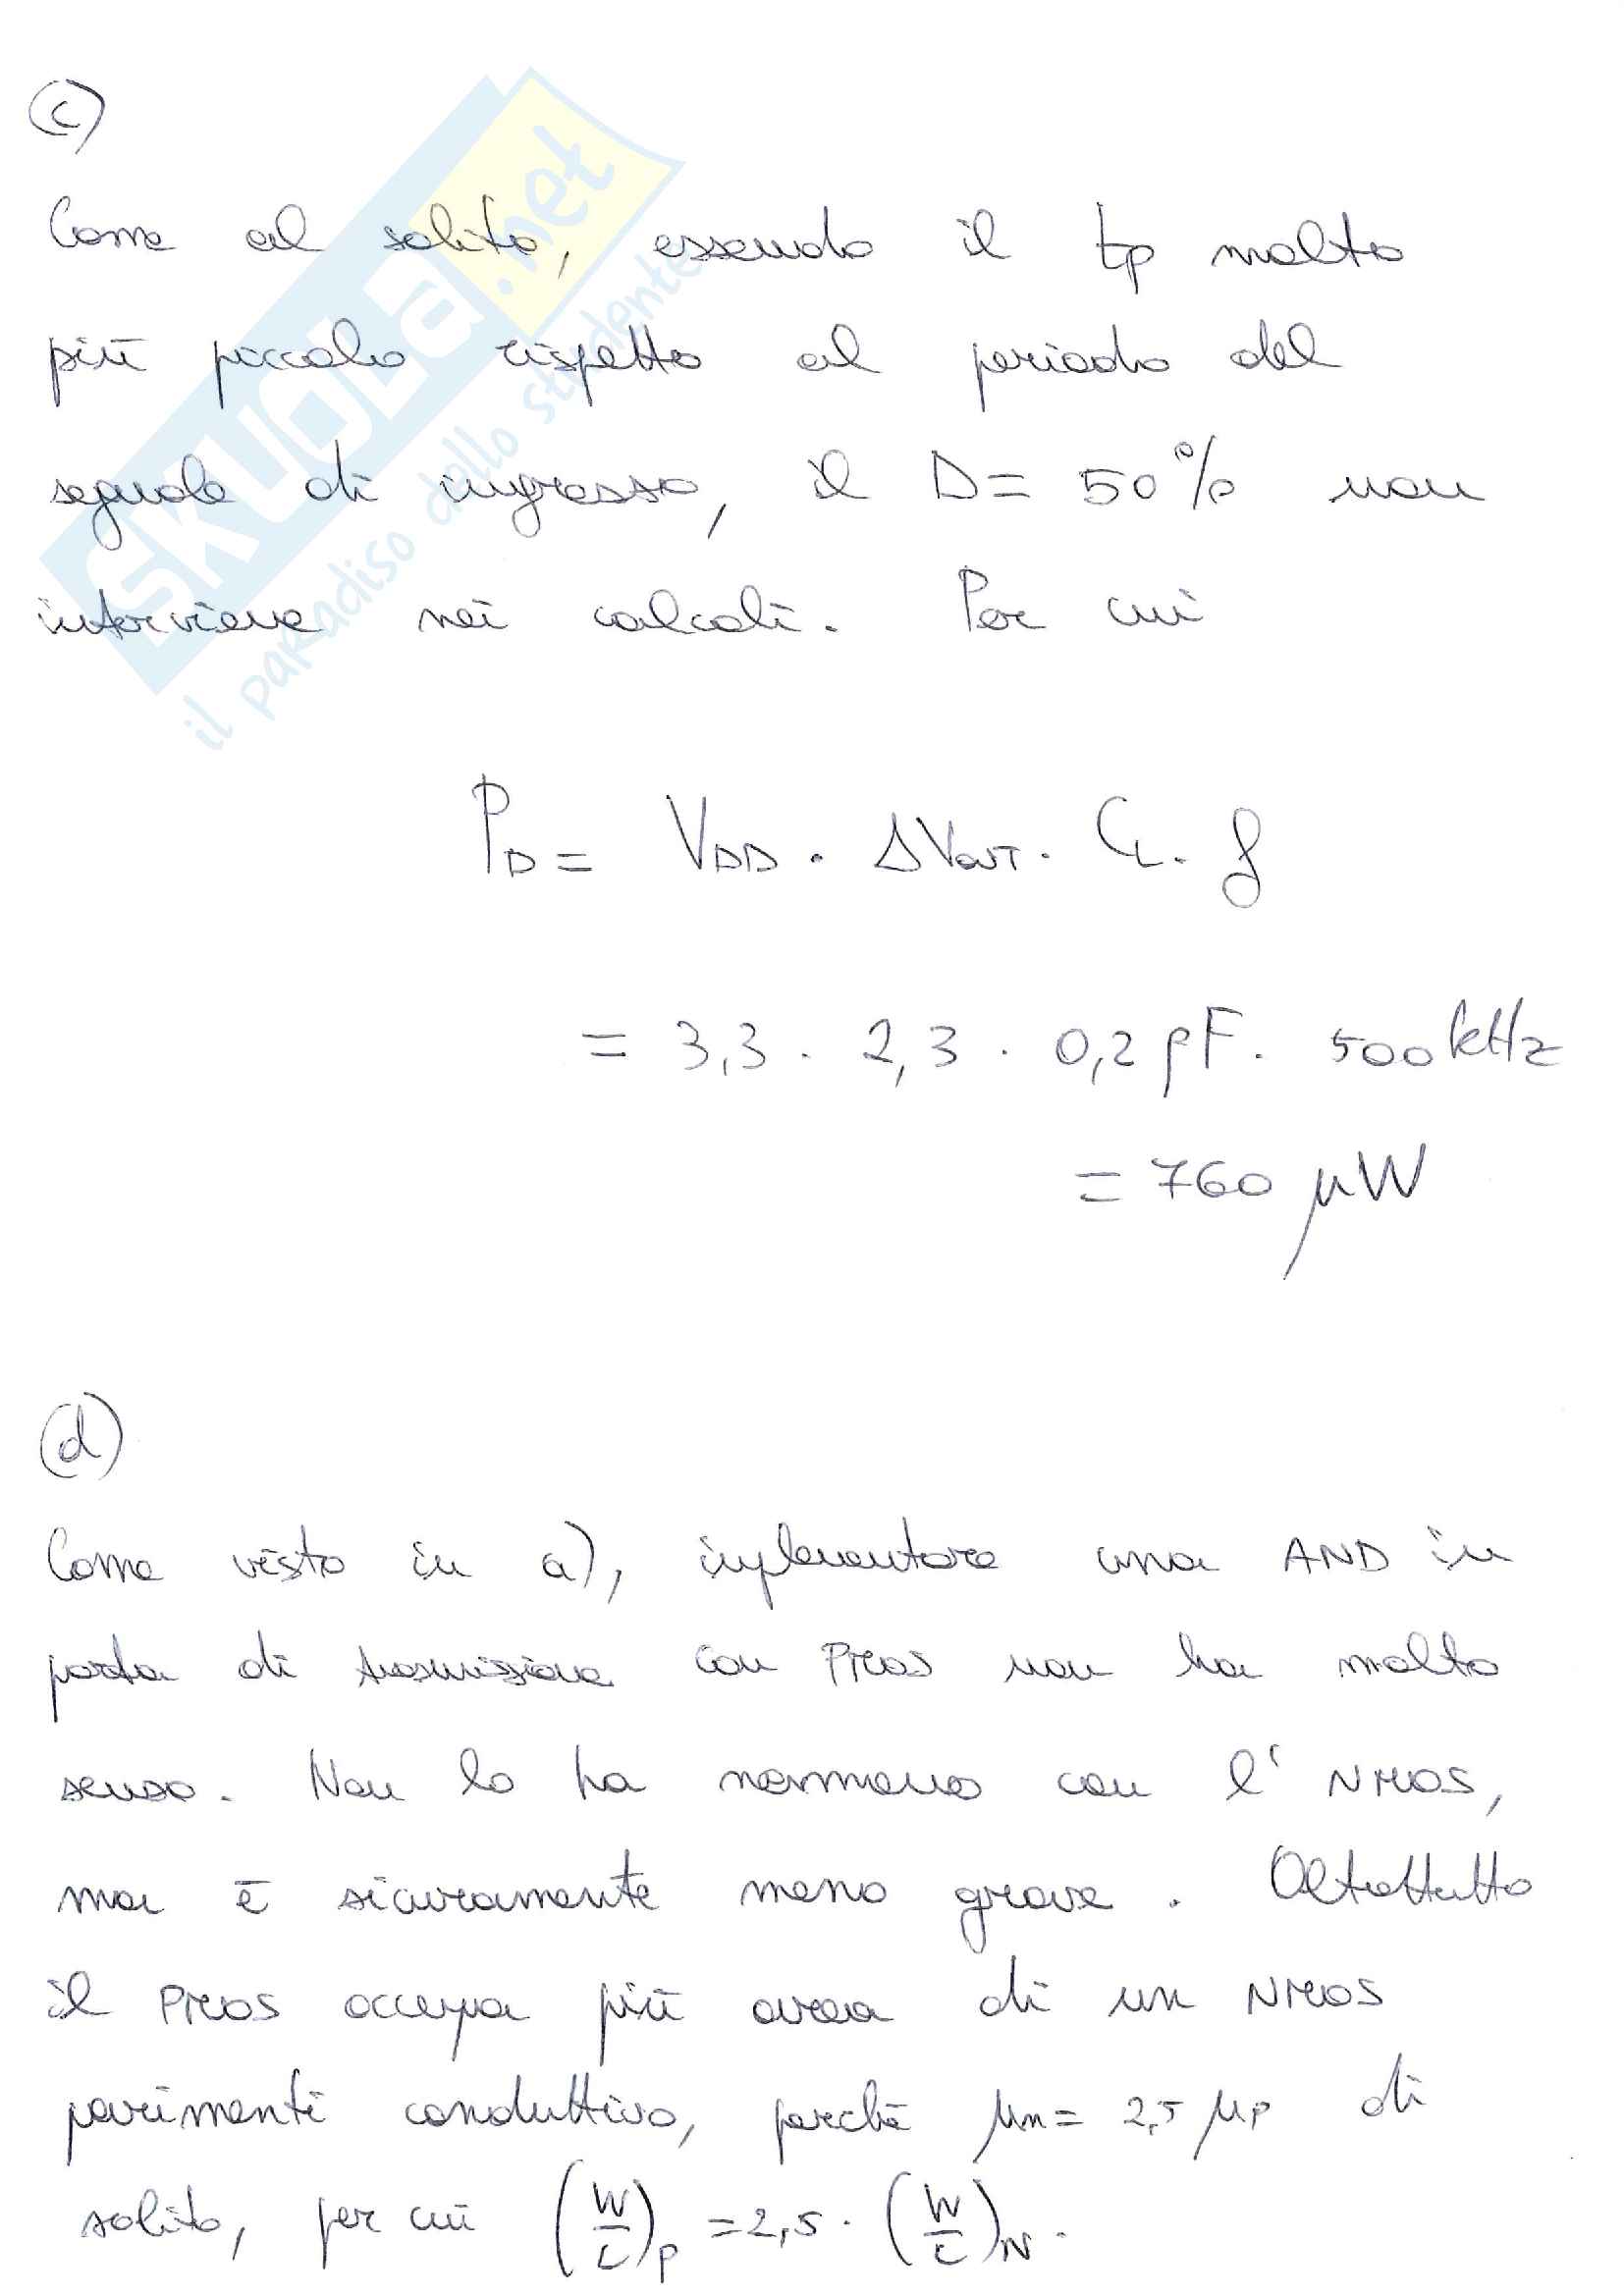 (c)
Come al solito, essendo il tp molto
più piccolo rispetto al periodo del
segnale di ingresso, il D = 50% non
interviene nei calcoli. Per cui
PD = VDD · ΔVOUT · CL · f
= 3,3 · 2,3 · 0,2 pF · 500 kHz
= 760 μW
(d)
Come visto in a), implementare una AND in
porta di trasmissione con PMOS non ha molto
senso. Non lo ha nemmeno con l' NMOS,
ma è sicuramente meno grave. Oltretutto
il PMOS occupa più area di un NMOS
parimenti conduttivo, perché μn = 2,5 μp di
solito, per cui (W/L)P = 2,5 · (W/L)N.
SKUOLA.net
il paradiso dello studente